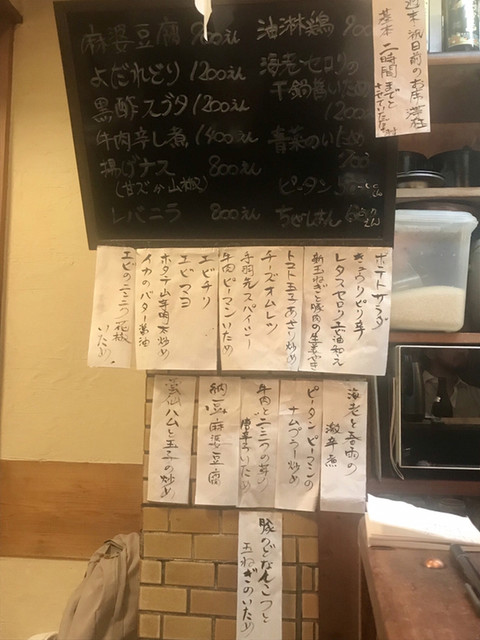 麻婆豆腐 900えん
よだれどり 1200えん
黒酢スブタ 1200えん
牛肉辛し煮 1400えん
揚げナス 800えん
(甘ズか山椒)
レバニラ 800えん
油淋鶏 90
海老・セロリの
干鍋醬いため
1200
青菜のいため
ピータン
ちぢみほうれん
週末、祝日前のお席
基本 二時間までと
させていただ
ポテトサラダ
きゅうりピリ辛
レタスセロリ
新玉ねぎと豚肉の生姜やき
トマト玉子あさり炒め
チーズオムレツ
手羽先スパイシー
牛肉ピーマンいため
エビチリ
エビマヨ
イカのバター醤油
エビのニンニク花椒
いため
海老と
激辛煮
ピータンピーマンの
ナムプラー炒め
牛肉とニンニクの芽の
いため
納豆麻婆豆腐
ハムと玉子の炒め
豚のどなんこつと
玉ねぎのいため